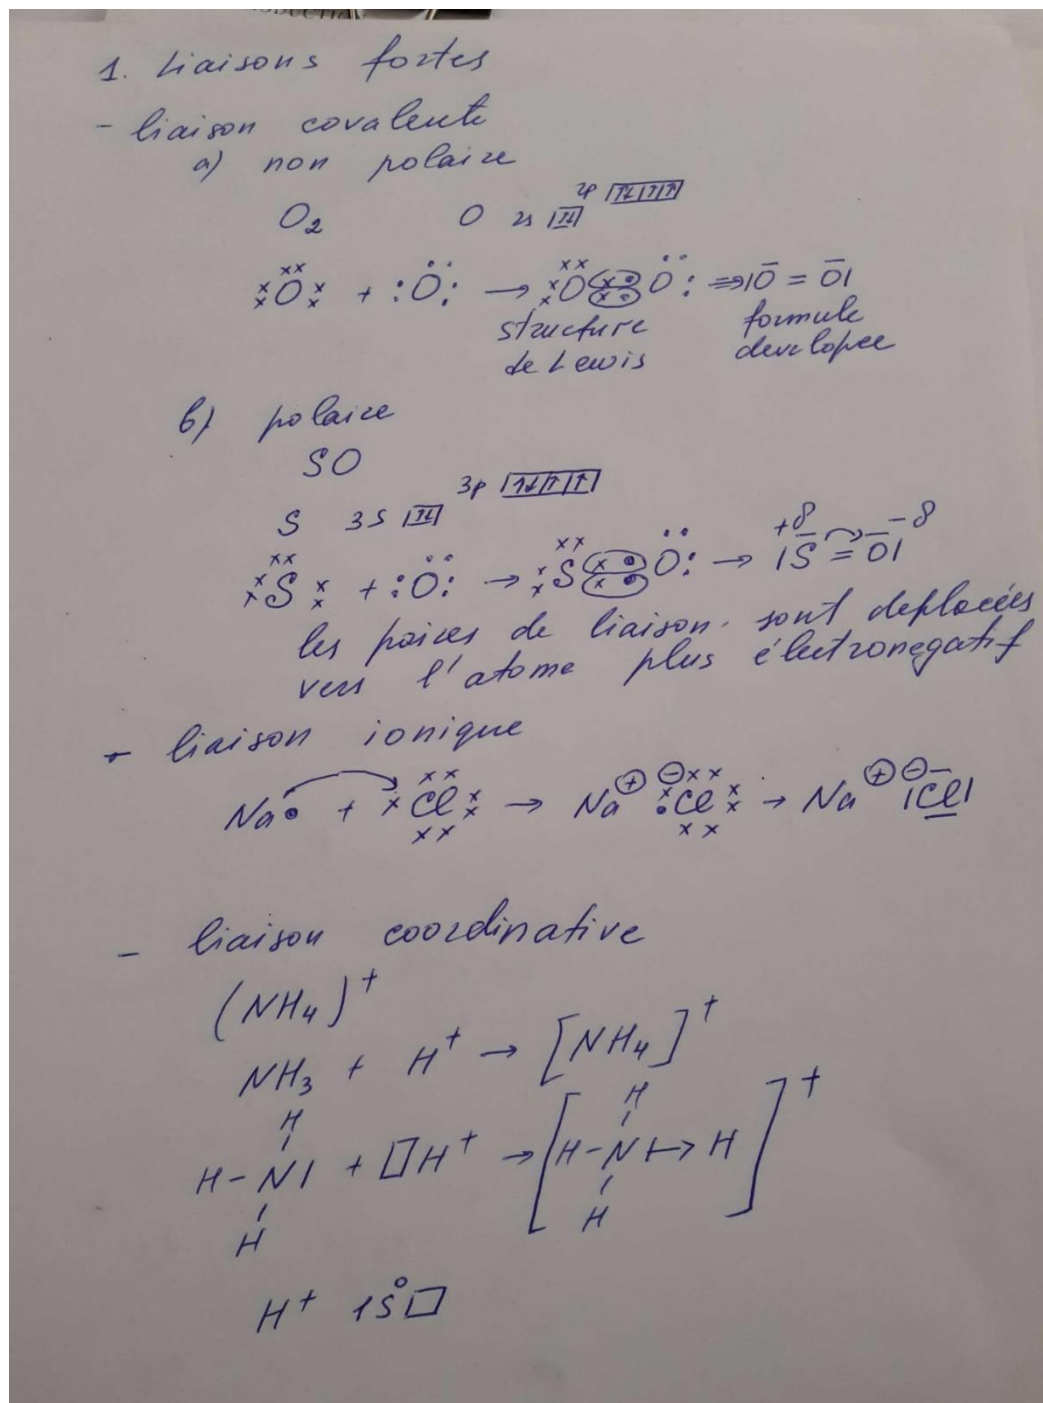 1. Liaisons fortes
- liaison covalente
a) non polaire
O₂ O 2s [↑↓] 2p [↑↓|↑|↑]
ₓˣOˣˣₓˣ + :Ö: → ˣₓOˣˣ(x•)(x•)Ö: ⇒ |O̅ = O̅|
structure formule
de Lewis developee
b) polaire
SO
S 3s [↑↓] 3p [↑↓|↑|↑]
ˣₓSˣˣₓˣ + :Ö: → ˣₓSˣˣ(x•)(x•)Ö: → +δ |S̅ = O̅| -δ
les paires de liaison sont deplacées
vers l'atome plus électronegatif
- liaison ionique
Na• + xClxx → Na⊕ ⊖ •xClxx → Na⊕ ⊖ |C̅l̲|
- liaison coordinative
(NH₄)⁺
NH₃ + H⁺ → [NH₄]⁺
H H
H-N| + □H⁺ → [H-N|→H]⁺
H H
H⁺ 1s⁰ □